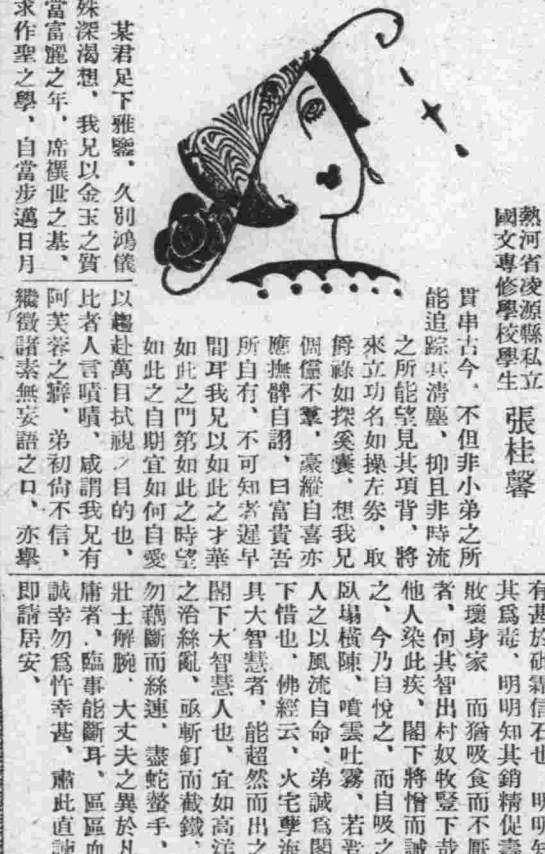 熱河省凌源縣私立
國文專修學校學生
張桂馨
某君足下雅鑒、久別鴻儀
殊深渴想、我兄以金玉之質
當富麗之年、席禩世之基、
求作聖之學、自當步邁日月
貫串古今、不但非小弟之所
能追踪其清塵、抑且非時流
之所能望見其項背、將
來立功名如操左劵、取
爵祿如探奚囊、想我兄
倜儻不羣、豪縱自喜亦
應撫髀自詡、曰富貴吾
所自有、不可知者遲早
間耳我兄以如此之才華
如此之門第如此之時望
如此之自期宜如何自愛
以趨赴萬目拭視之目的也、
比者人言嘖嘖、咸謂我兄有
阿芙蓉之癖、弟初尙不信、
繼徵諸素無妄語之口、亦擧
有甚於砒霜信石也、明明知
其爲毒、明明知其銷精促壽
敗壞身家、而猶吸食而不厭
者、何其智出村奴牧豎下哉
他人染此疾、閣下將憎而誡
之、今乃自悅之、而自吸之
臥塲橫陳、噴雲吐霧、若
人之以風流自命、弟誠爲閣
下惜也、佛經云、火宅孽海
具大智慧者、能超然而出之
閣下大智慧人也、宜如高洋
之治絲亂、亟斬釘而截鐵、
勿藕斷而絲連、盡蛇螫手、
壯士解腕、大丈夫之異於凡
庸者、臨事能斷耳、區區血
誠幸勿爲忤幸甚、肅此直諫
即請居安、